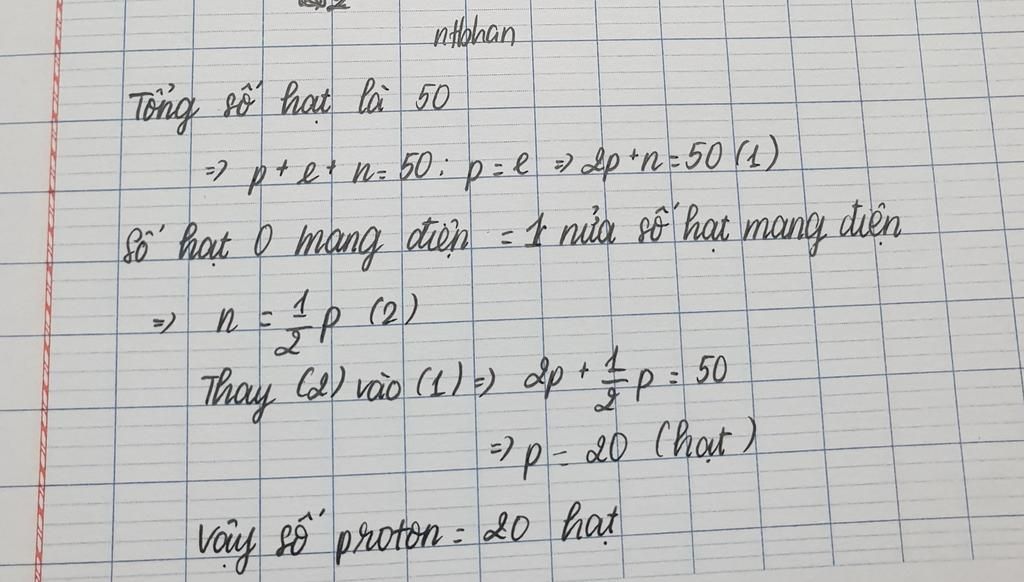 nHbhan
Tổng số hạt là 50
=> p + e + n = 50 ; p = e => 2p + n = 50 (1)
Số hạt 0 mang điện = 1 nửa số hạt mang điện
=> n = 1/2 p (2)
Thay (2) vào (1) => 2p + 1/2 p = 50
=> p = 20 (hạt)
Vậy số proton = 20 hạt